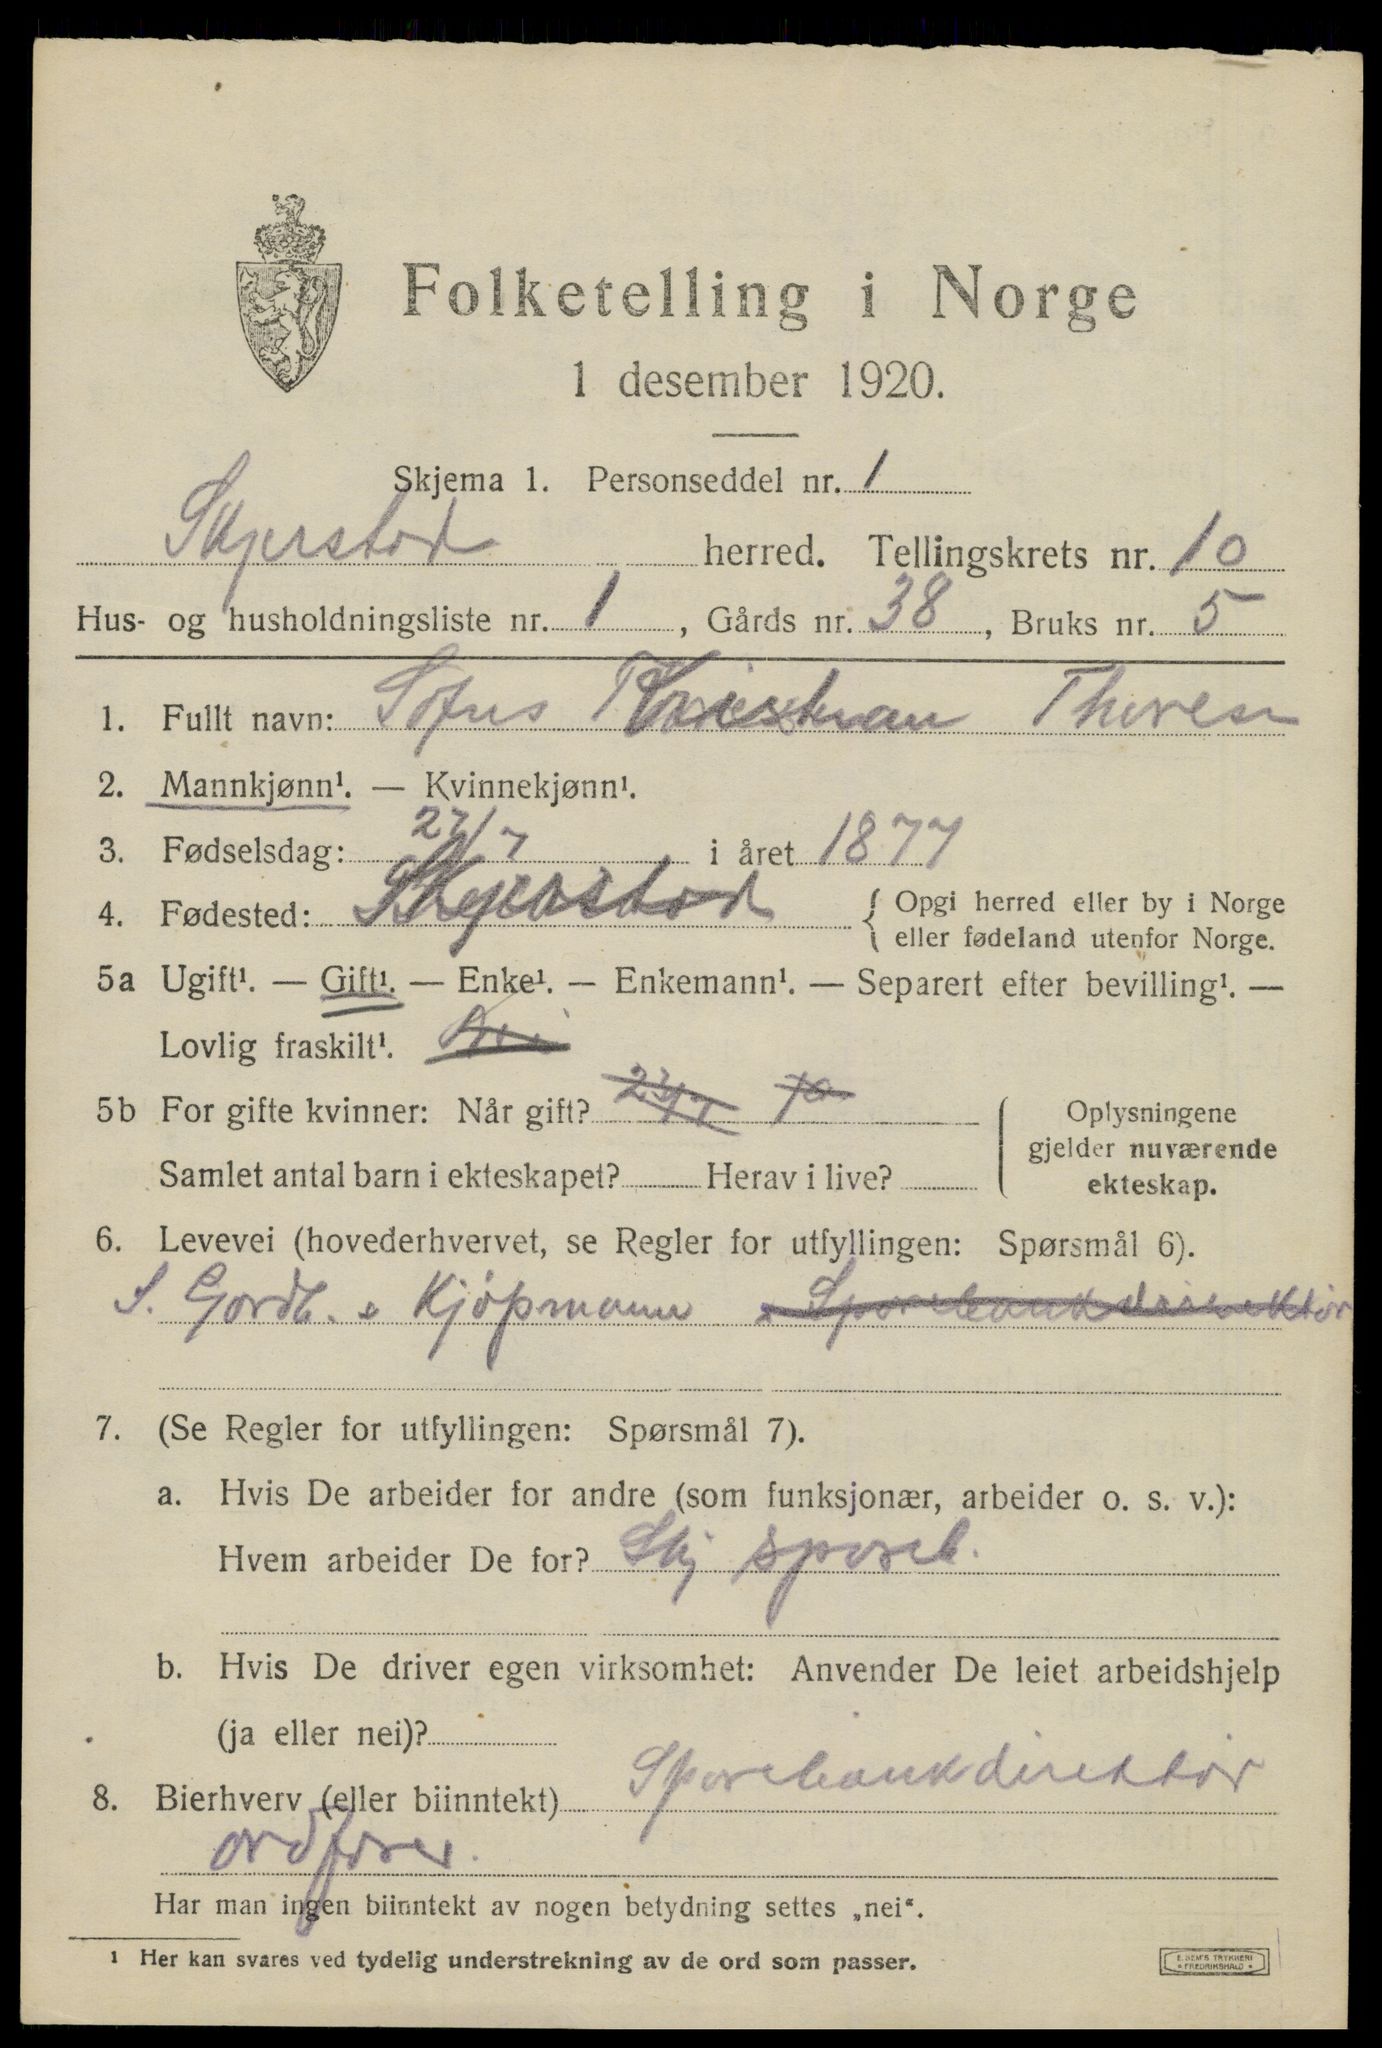 Folketelling i Norge
1 desember 1920.
Skjema 1. Personseddel nr. 1
Skjerstad herred. Tellingskrets nr. 10
Hus- og husholdningsliste nr. 1, Gårds nr. 38, Bruks nr. 5
1. Fullt navn: Sofus Kristian Thoresen
2. Mannkjønn¹. — Kvinnekjønn¹.
3. Fødselsdag: 27/7 i året 1877
4. Fødested: Skjerstad { Opgi herred eller by i Norge
eller fødeland utenfor Norge.
5a Ugift¹. — Gift¹. — Enke¹. — Enkemann¹. — Separert efter bevilling¹. —
Lovlig fraskilt¹.
5b For gifte kvinner: Når gift?
Oplysningene
gjelder nuværende
ekteskap.
Samlet antal barn i ekteskapet? Herav i live?
6. Levevei (hovederhvervet, se Regler for utfyllingen: Spørsmål 6).
S. Gardb. & Kjøpmann & Sparebankdirektør
7. (Se Regler for utfyllingen: Spørsmål 7).
a. Hvis De arbeider for andre (som funksjonær, arbeider o. s. v.):
Hvem arbeider De for? Skj spareb.
b. Hvis De driver egen virksomhet: Anvender De leiet arbeidshjelp
(ja eller nei)?
8. Bierhverv (eller biinntekt) Sparebankdirektør
ordfører.
Har man ingen biinntekt av nogen betydning settes „nei“.
¹ Her kan svares ved tydelig understrekning av de ord som passer.
E. SEM'S TRYKKERI
FREDRIKSHALD